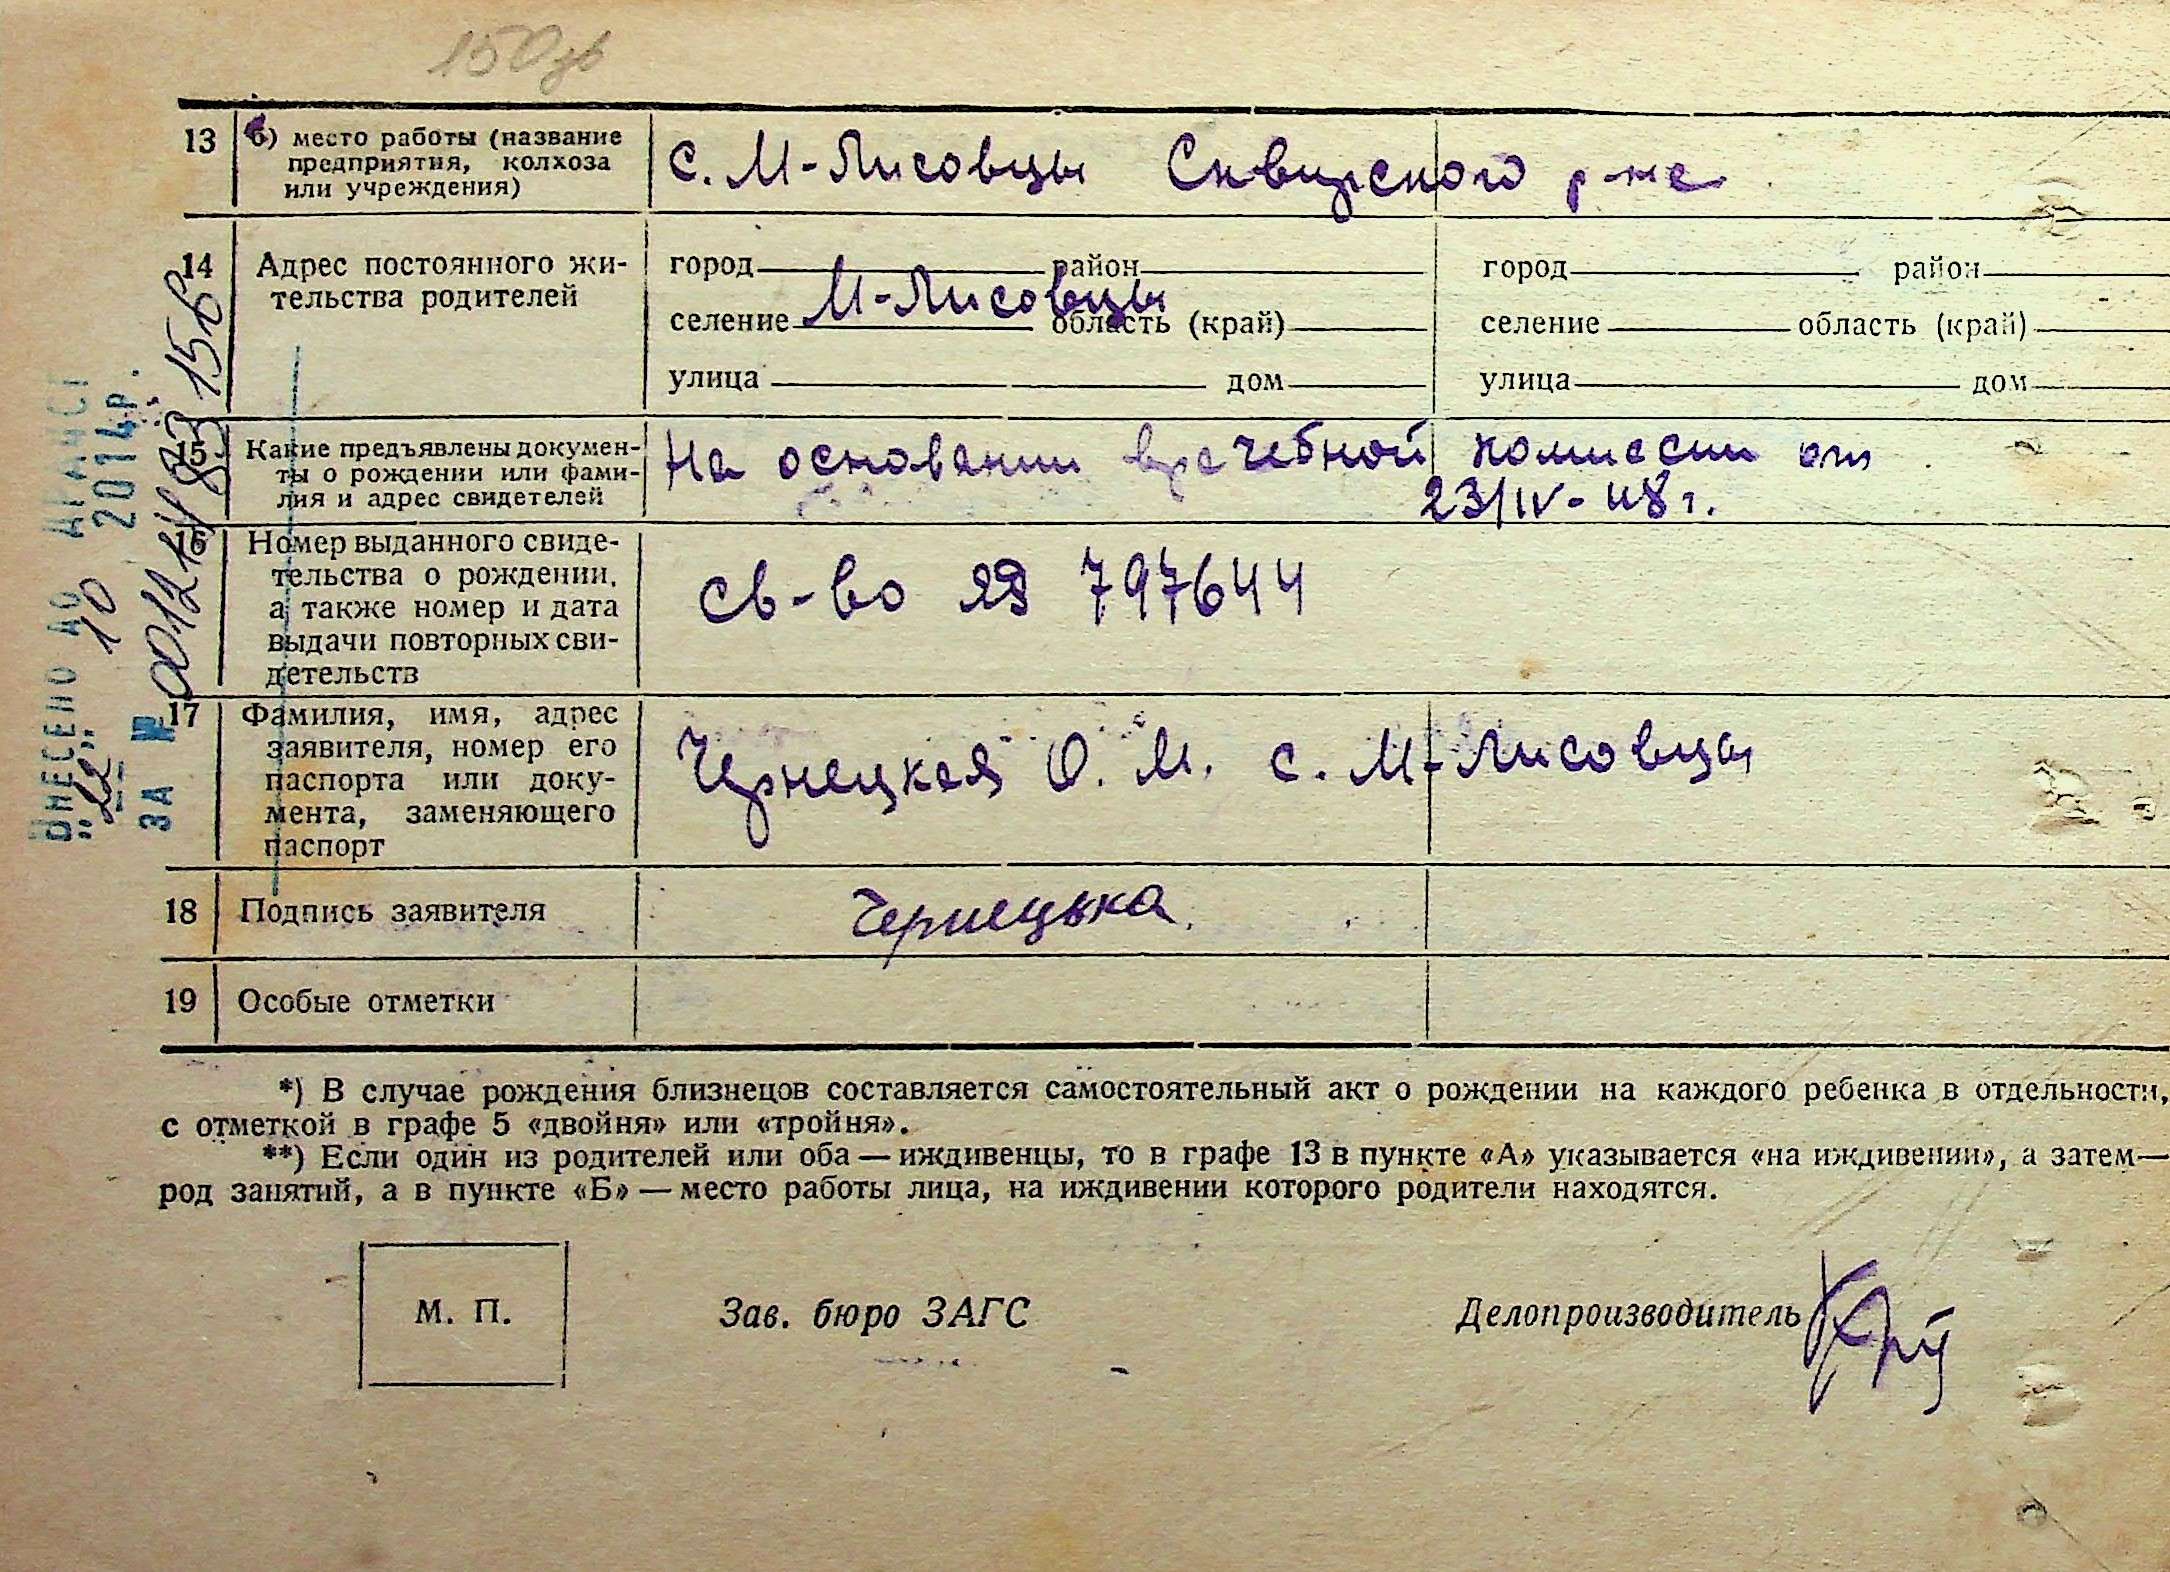 150зв
13 б) место работы (название
предприятия, колхоза
или учреждения)
с. М-Лисовцы Сквирского р-на
14 Адрес постоянного жи-
тельства родителей
город район
М-Лисовцы
селение область (край)
улица дом
город район
селение область (край)
улица дом
15 Какие предъявлены докумен-
ты о рождении или фами-
лия и адрес свидетелей
На основании врачебной комиссии от
23/IV-48 г.
16 Номер выданного свиде-
тельства о рождении,
а также номер и дата
выдачи повторных сви-
детельств
св-во ЯЯ 797644
17 Фамилия, имя, адрес
заявителя, номер его
паспорта или доку-
мента, заменяющего
паспорт
Чернецкая О. М. с. М-Лисовцы
18 Подпись заявителя
Чернецька.
19 Особые отметки
*) В случае рождения близнецов составляется самостоятельный акт о рождении на каждого ребенка в отдельности,
с отметкой в графе 5 «двойня» или «тройня».
**) Если один из родителей или оба — иждивенцы, то в графе 13 в пункте «А» указывается «на иждивении», а затем—
род занятий, а в пункте «Б» — место работы лица, на иждивении которого родители находятся.
М. П.
Зав. бюро ЗАГС
Делопроизводитель
ВНЕСЕНО ДО ДРАЦСГ
"22" 10 2014р.
ЗА №